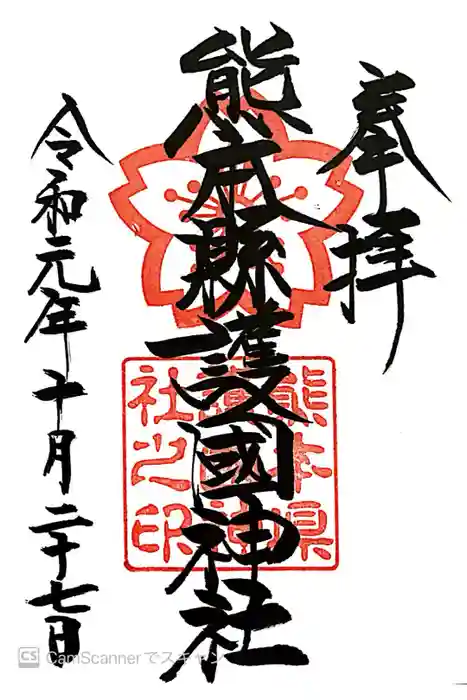 奉拝
熊本縣護國神社
令和元年十月二十七日
熊本県
護國神
社之印
CS CamScannerでスキャン